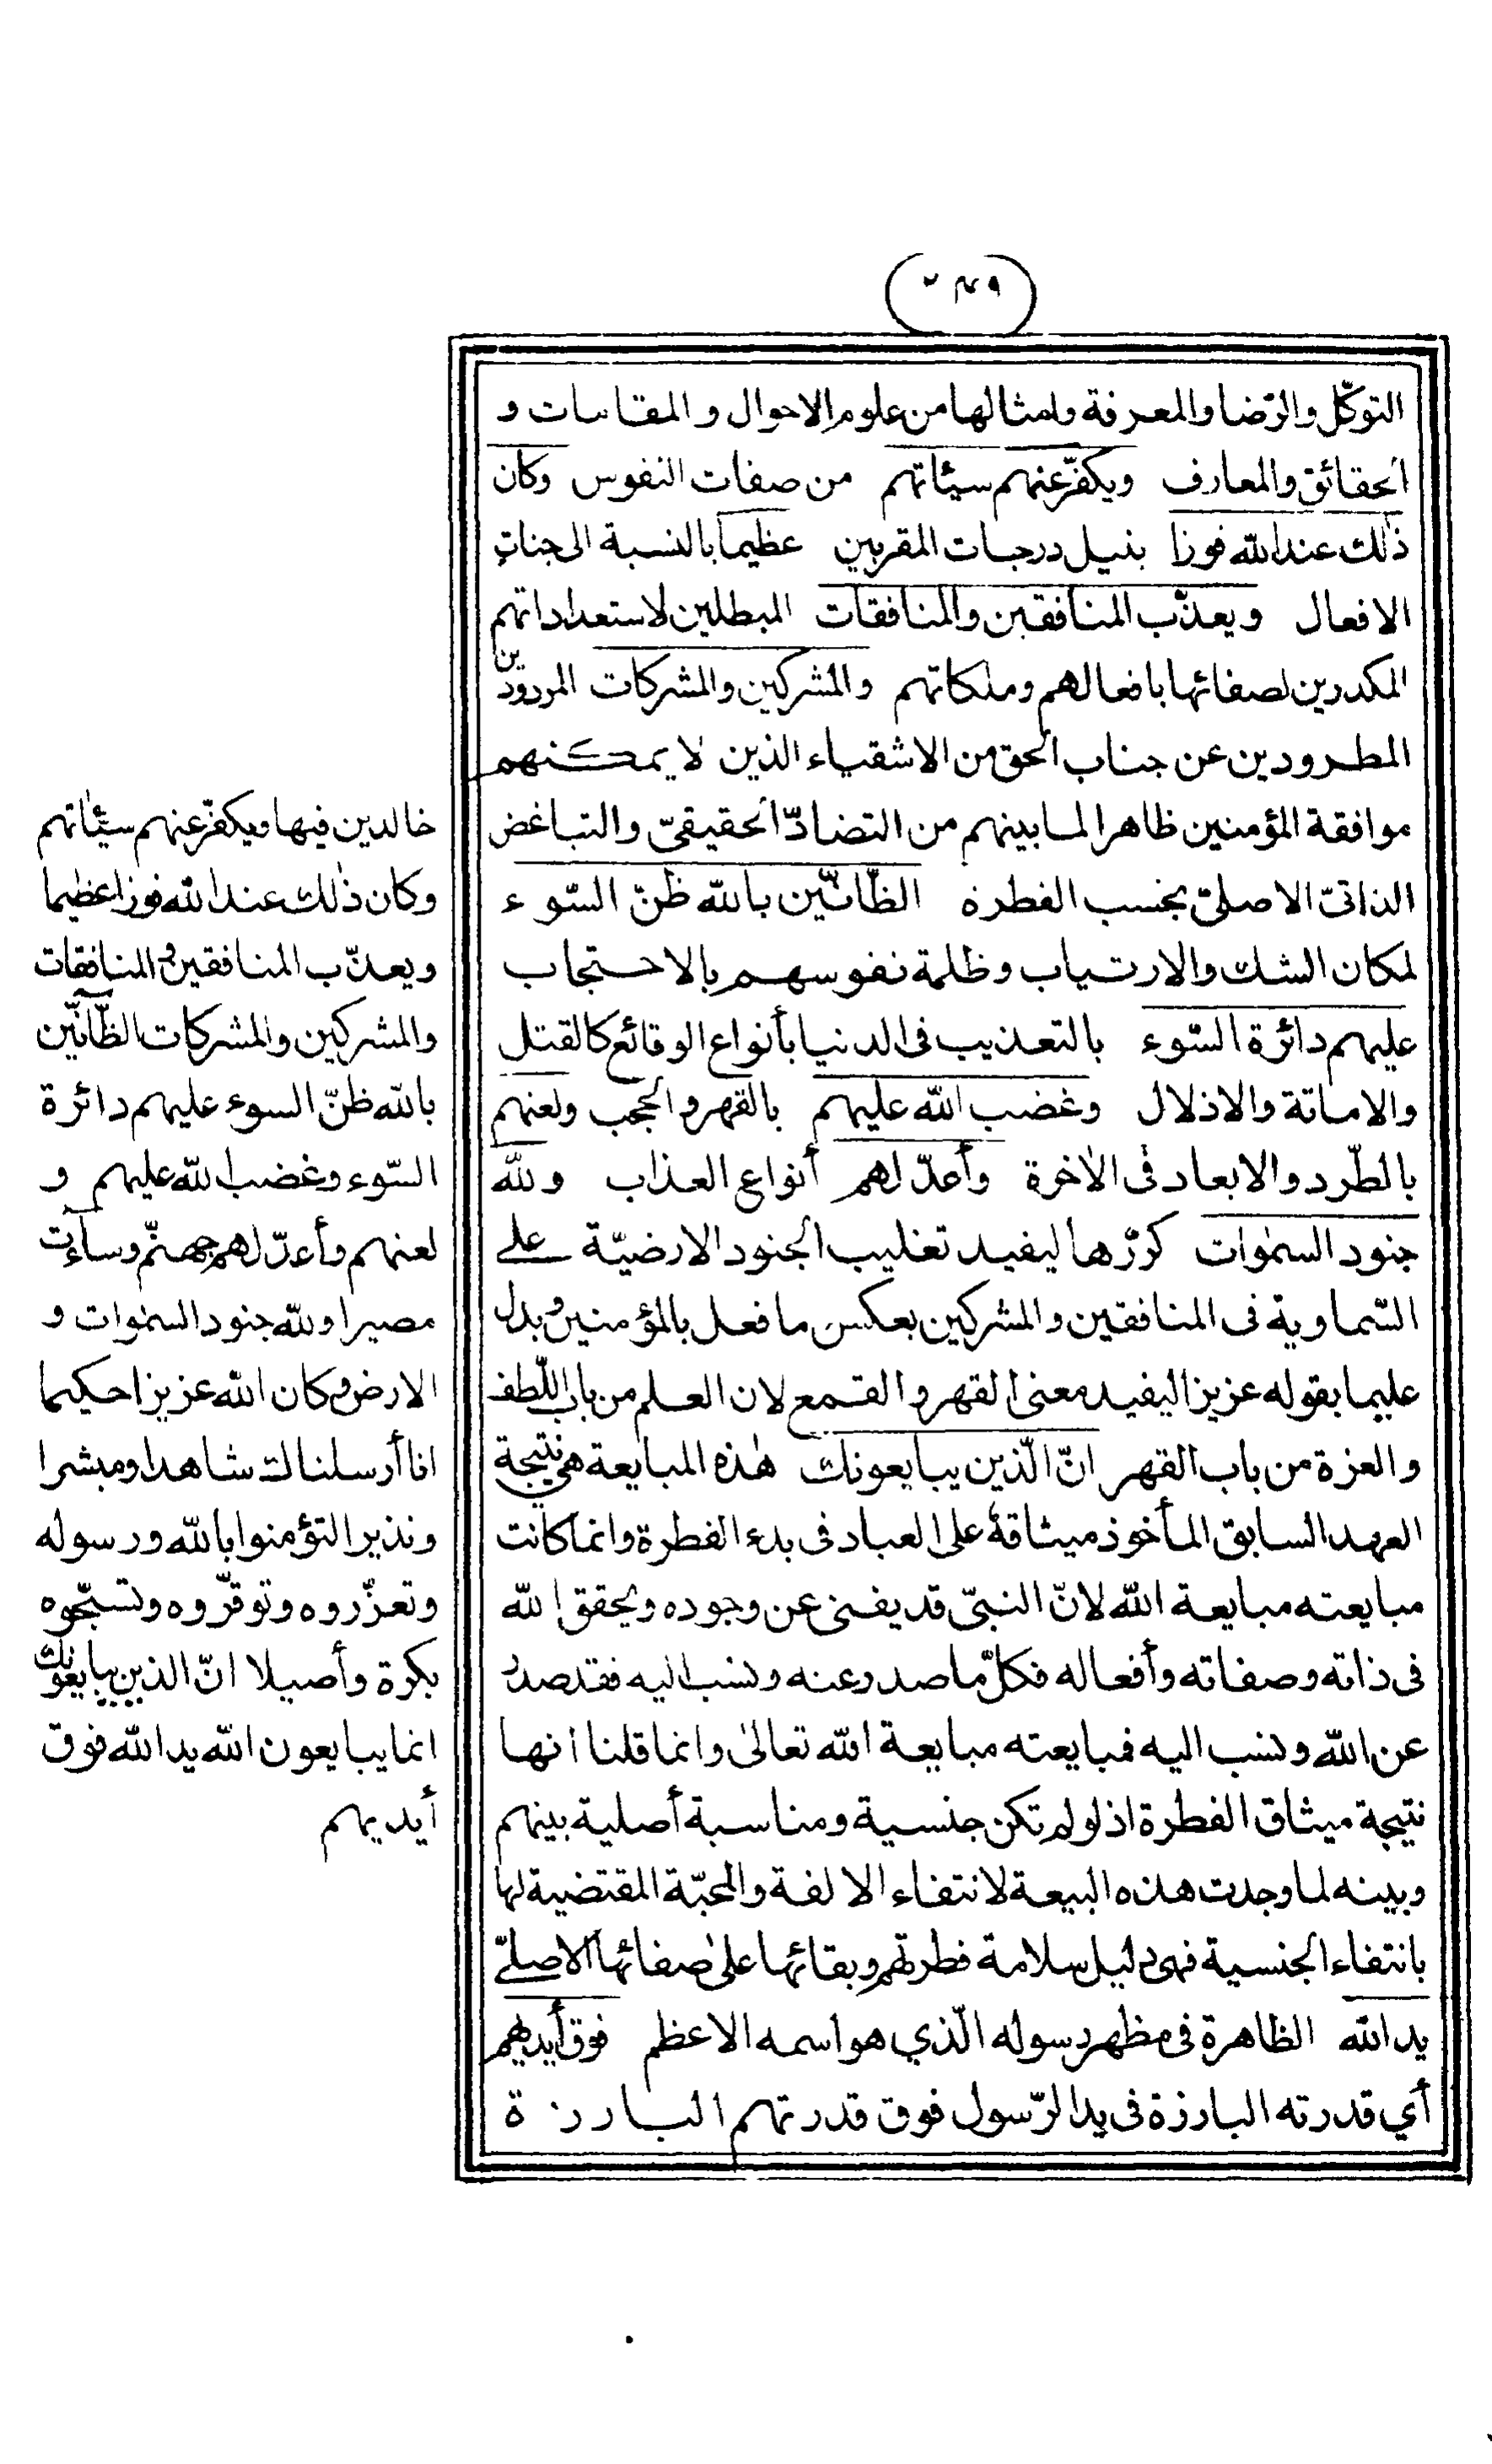 (٢٤٩)
التوكّل والرّضا والمعرفة وامثالها من علوم الاحوال والمقامات و
الحقائق والمعارف ويكفّر عنهم سيئاتهم من صفات النفوس وكان
ذٰلك عند الله فوزا بنيل درجات المقربين عظيما بالنسبة الى جنات
الافعال ويعذّب المنافقين والمنافقات المبطلين لاستعداداتهم
المكدرين لصفائها بافعالهم وملكاتهم والمشركين والمشركات المردودين
المطرودين عن جناب الحق من الاشقياء الذين لا يمكنهم
موافقة المؤمنين ظاهرا لما بينهم من التضادّ الحقيقيّ والتباغض
الذاتىّ الاصلىّ بحسب الفطرة الظّانّين بالله ظنّ السّوء
لمكان الشك والارتياب وظلمة نفوسهم بالاحتجاب
عليهم دائرة السّوء بالتعذيب فى الدنيا بأنواع الوقائع كالقتل
والاماتة والاذلال وغضب الله عليهم بالقهر والحجب ولعنهم
بالطّرد والابعاد فى الاٰخرة وأعدّ لهم أنواع العذاب ولله
جنود السمٰوات كرّرها ليفيد تغليب الجنود الارضيّة على
السّماوية فى المنافقين والمشركين بعكس ما فعل بالمؤمنين وبدل
عليما بقوله عزيزا ليفيد معنى القهر والقمع لان العلم من باب اللّطف
والعزة من باب القهر انّ الّذين يبايعونك هٰذه المبايعة هى نتيجة
العهد السابق المأخوذ ميثاقه على العباد فى بدء الفطرة وانما كانت
مبايعته مبايعة الله لانّ النبىّ قد يفنى عن وجوده ويحقق لله
فى ذاته وصفاته وأفعاله فكلّ ما صدر عنه ونسب اليه فقد صدر
عن الله ونسب اليه فمبايعته مبايعة الله تعالىٰ وانما قلنا انها
نتيجة ميثاق الفطرة اذ لو لم تكن جنسية ومناسبة أصلية بينهم
وبينه لما وجدت هذه البيعة لانتفاء الالفة والمحبّة المقتضية لها
بانتفاء الجنسية فهى دليل سلامة فطرتهم وبقائها علىٰ صفائها الاصلىّ
يد الله الظاهرة فى مظهر رسوله الّذي هو اسمه الاعظم فوق أيديهم
أي قدرته البارزة فى يد الرّسول فوق قدرتهم البارزة
خالدين فيها ويكفّر عنهم سيّئاتهم
وكان ذٰلك عند الله فوزا عظيما
ويعذّب المنافقين والمنافقات
والمشركين والمشركات الظّانّين
بالله ظنّ السوء عليهم دائرة
السّوء وغضب الله عليهم و
لعنهم وأعدّ لهم جهنّم وساءت
مصيرا ولله جنود السمٰوات و
الارض وكان الله عزيزا حكيما
انا أرسلناك شاهدا ومبشرا
ونذيرا لتؤمنوا بالله ورسوله
وتعزّروه وتوقّروه وتسبّحوه
بكرة وأصيلا انّ الذين يبايعونك
انما يبايعون الله يد الله فوق
أيديهم